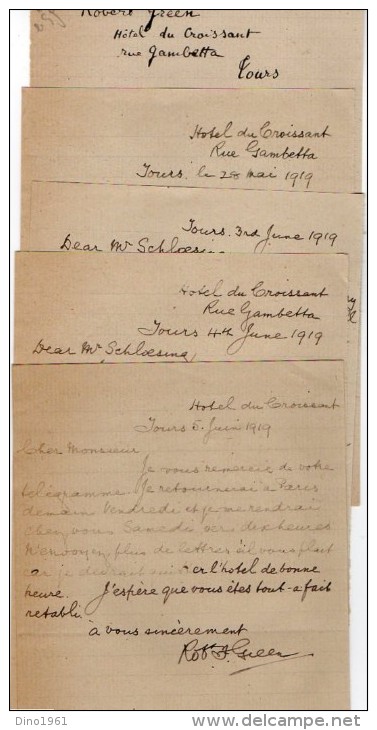 Robert Green
Hôtel du Croissant
rue Gambetta
Tours
Hotel du Croissant
Rue Gambetta
Tours. le 28 mai 1919
Tours. 3rd June 1919
Dear Mr Schlœsing
Hotel du Croissant
Rue Gambetta
Tours 4th June 1919
Dear Mr Schlœsing,
Hotel du Croissant
Tours 5 Juin 1919
Cher Monsieur
Je vous remercie de votre
télégramme. Je retournerai à Paris
demain Vendredi et je me rendrai
chez vous Samedi vers dix heures
N'envoyez plus de lettres s'il vous plait
car je l'hotel de bonne
heure. J'espère que vous êtes tout-a fait
retabli.
à vous sincèrement
Robt. Green
Dino1961